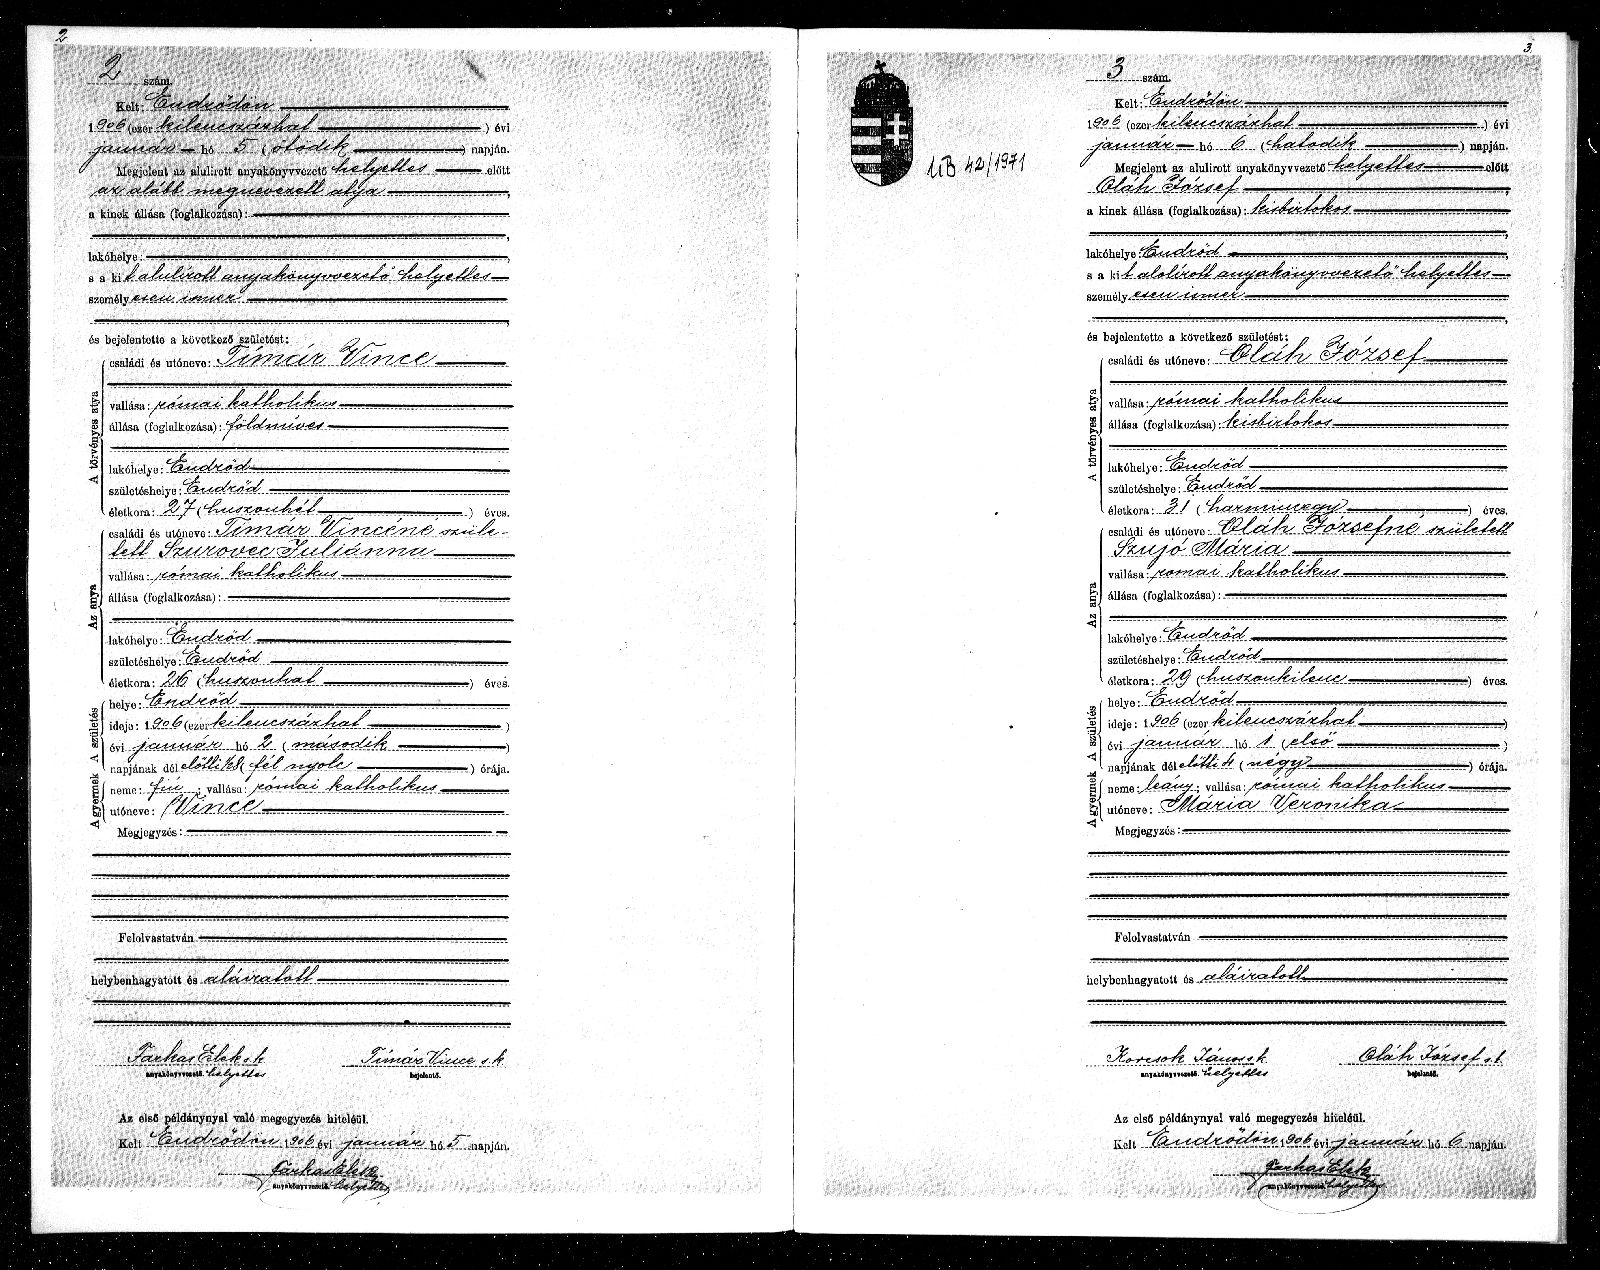 2
2 szám.
Kelt: Endrődön
1906 (ezer kilencszázhat) évi
január hó 5 (ötödik) napján.
Megjelent az alulirott anyakönyvvezető helyettes előtt
az alább megnevezett atya,
a kinek állása (foglalkozása):
lakóhelye:
s a kit alulírott anyakönyvvezető helyettes
személyesen ismer
és bejelentette a következő születést:
A törvényes atya
családi és utóneve: Tímár Vince
vallása: római katholikus
állása (foglalkozása): földmíves
lakóhelye: Endrőd
születéshelye: Endrőd
életkora: 27 (huszonhét) éves.
Az anya
családi és utóneve: Tímár Vincéné szüle-
tett Szurovec Juliánna
vallása: római katholikus
állása (foglalkozása):
lakóhelye: Endrőd
születéshelye: Endrőd
életkora: 26 (huszonhat) éves.
A születés
helye: Endrőd
ideje: 1906 (ezer kilencszázhat)
évi január hó 2 (második)
napjának dél előtti (fél nyolc) órája.
A gyermek
neme: fiú; vallása: római katholikus
utóneve: Vince
Megjegyzés:
Felolvastatván
helybenhagyatott és aláiratott
Farkas Elek s.k. Tímár Vince s.k.
anyakönyvvezető. helyettes bejelentő.
Az első példánynyal való megegyezés hiteléül.
Kelt Endrődön 1906 évi január hó 5 napján.
Farkas Elek
anyakönyvvezető. helyettes
42/1971
3.
3 szám.
Kelt: Endrődön
1906 (ezer kilencszázhat) évi
január hó 6 (hatodik) napján.
Megjelent az alulirott anyakönyvvezető helyettes előtt
Oláh József,
a kinek állása (foglalkozása): kisbirtokos
lakóhelye: Endrőd
s a kit alólírott anyakönyvvezető helyettes
személyesen ismer
és bejelentette a következő születést:
A törvényes atya
családi és utóneve: Oláh József
vallása: római katholikus
állása (foglalkozása): kisbirtokos
lakóhelye: Endrőd
születéshelye: Endrőd
életkora: 31 (harmincegy) éves.
Az anya
családi és utóneve: Oláh Józsefné született
Szujó Mária
vallása: római katholikus
állása (foglalkozása):
lakóhelye: Endrőd
születéshelye: Endrőd
életkora: 29 (huszonkilenc) éves.
A születés
helye: Endrőd
ideje: 1906 (ezer kilencszázhat)
évi január hó 1 (első)
napjának dél előtti 4 (négy) órája.
A gyermek
neme: leány; vallása: római katholikus
utóneve: Mária Veronika
Megjegyzés:
Felolvastatván
helybenhagyatott és aláiratott
Korcsok János s.k. Oláh József s.k.
anyakönyvvezető. helyettes bejelentő.
Az első példánynyal való megegyezés hiteléül.
Kelt Endrődön 1906 évi január hó 6 napján.
Farkas Elek
anyakönyvvezető. helyettes